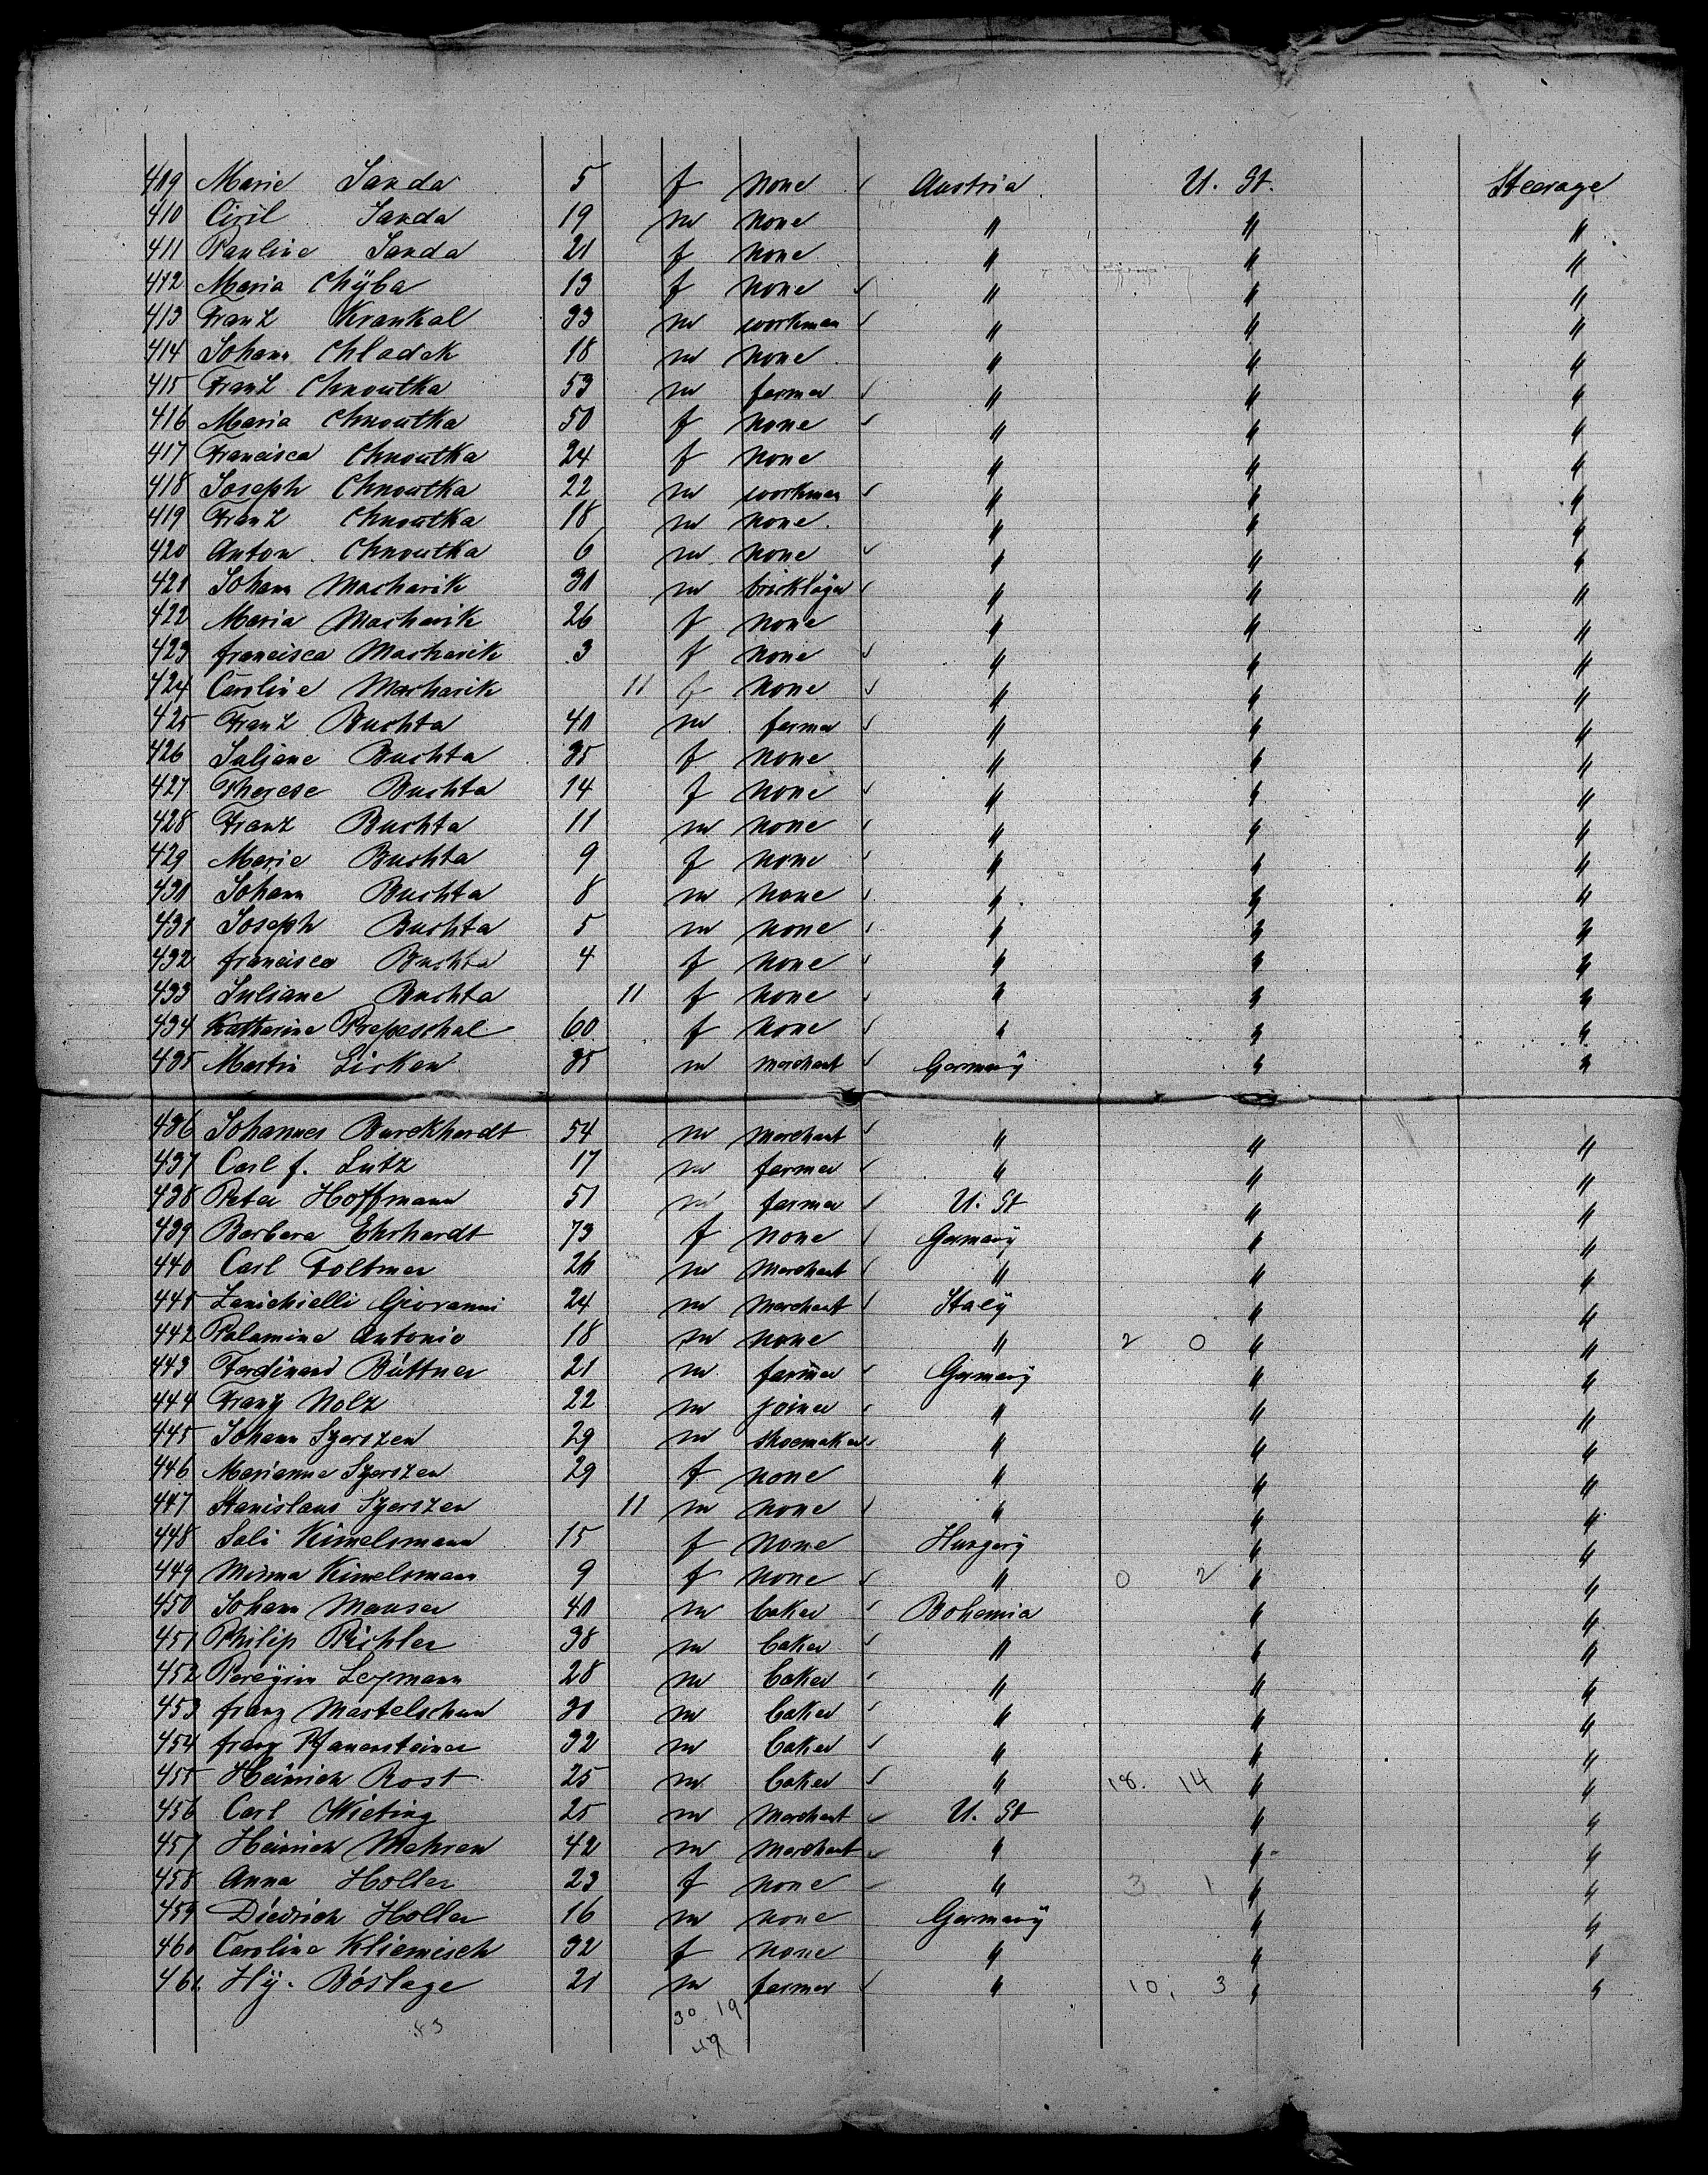 409 Marie Janda 5 f none Austria U. St. Steerage
410 Ciril Janda 19 m none " " "
411 Pauline Janda 21 f none " " "
412 Maria Chÿba 13 f none " " "
413 Franz Krankal 33 m workman " " "
414 Johann Chladek 18 m none " " "
415 Franz Chnoutka 53 m farmer " " "
416 Maria Chnoutka 50 f none " " "
417 Francisca Chnoutka 24 f none " " "
418 Joseph Chnoutka 22 m workman " " "
419 Franz Chnoutka 18 m none " " "
420 Anton Chnoutka 6 m none " " "
421 Johann Macharik 31 m bricklayer " " "
422 Maria Macharik 26 f none " " "
423 francisca Macharik 3 f none " " "
424 Caroline Macharik 11 f none " " "
425 Franz Buchta 41 m farmer " " "
426 Juliane Buchta 35 f none " " "
427 Therese Buchta 14 f none " " "
428 Franz Buchta 11 m none " " "
429 Marie Buchta 9 f none " " "
430 Johann Buchta 8 m none " " "
431 Joseph Buchta 5 m none " " "
432 francisca Buchta 4 f none " " "
433 Juliane Buchta 11 f none " " "
434 Katharina Prepeschal 60 f none " " "
435 Martin Lirken 35 m merchant Germanÿ " "
436 Johannes Burckhardt 54 m merchant " " "
437 Carl f. Lutz 17 m farmer " " "
438 Peter Hoffmann 51 m farmer U. St " "
439 Barbara Ehrhardt 73 f none Germanÿ " "
440 Carl Foltmer 26 m merchant " " "
441 Zanichielli Giovanni 24 m merchant Italÿ " "
442 Palamina Antonio 18 m none " 2 0 " "
443 Ferdinand Büttner 21 m farmer Germanÿ " "
444 Franz Nolz 22 m joiner " " "
445 Johann Szerszen 29 m shoemaker " " "
446 Marianna Szerszen 29 f none " " "
447 Stanislaus Szerszen 11 m none " " "
448 Sali Kimelsmann 15 f none Hungarÿ " "
449 Minna Kimelsmann 9 f none " 0 2 " "
450 Johann Mauser 41 m baker Bohemia " "
451 Philip Pichler 38 m baker " " "
452 28 m baker " " "
453 franz Martelschen 31 m baker " " "
454 franz Pfauensteiner 32 m baker " " "
455 Heinrich Rost 25 m baker " 18. 14 " "
456 Carl Wieting 25 m merchant U. St " "
457 Heinrich Mehren 42 m merchant " " "
458 Anna Holler 23 f none " 3 1 " "
459 Diedrich Holler 16 m none Germanÿ " "
460 Carolina Kliemisch 32 f none " " "
461. Hÿ. Böslage 21 m farmer " 10, 3 " "
30 19
49